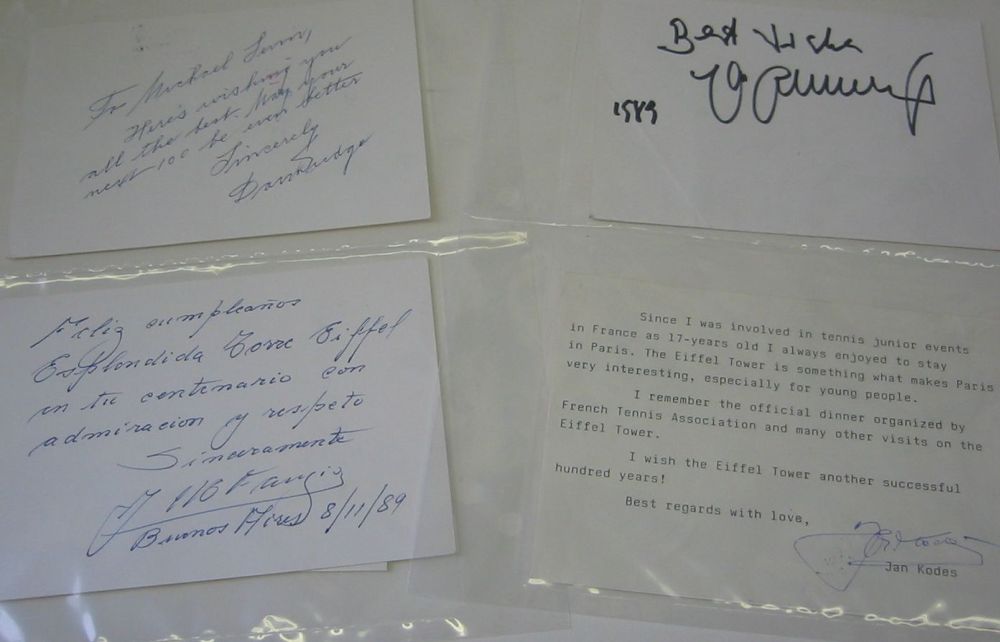 To Michael
Here's wishing you
all the best. May your
next 100 be even better
Sincerely
Best Wishes
1989
Feliz cumpleaños
Esplendida Torre Eiffel
en tu centenario con
admiracion y respeto
Sinceramente
Buenos Aires 8/11/89
Since I was involved in tennis junior events
in France as 17-years old I always enjoyed to stay
in Paris. The Eiffel Tower is something what makes Paris
very interesting, especially for young people.
I remember the official dinner organized by
French Tennis Association and many other visits on the
Eiffel Tower.
I wish the Eiffel Tower another successful
hundred years!
Best regards with love,
Jan Kodes